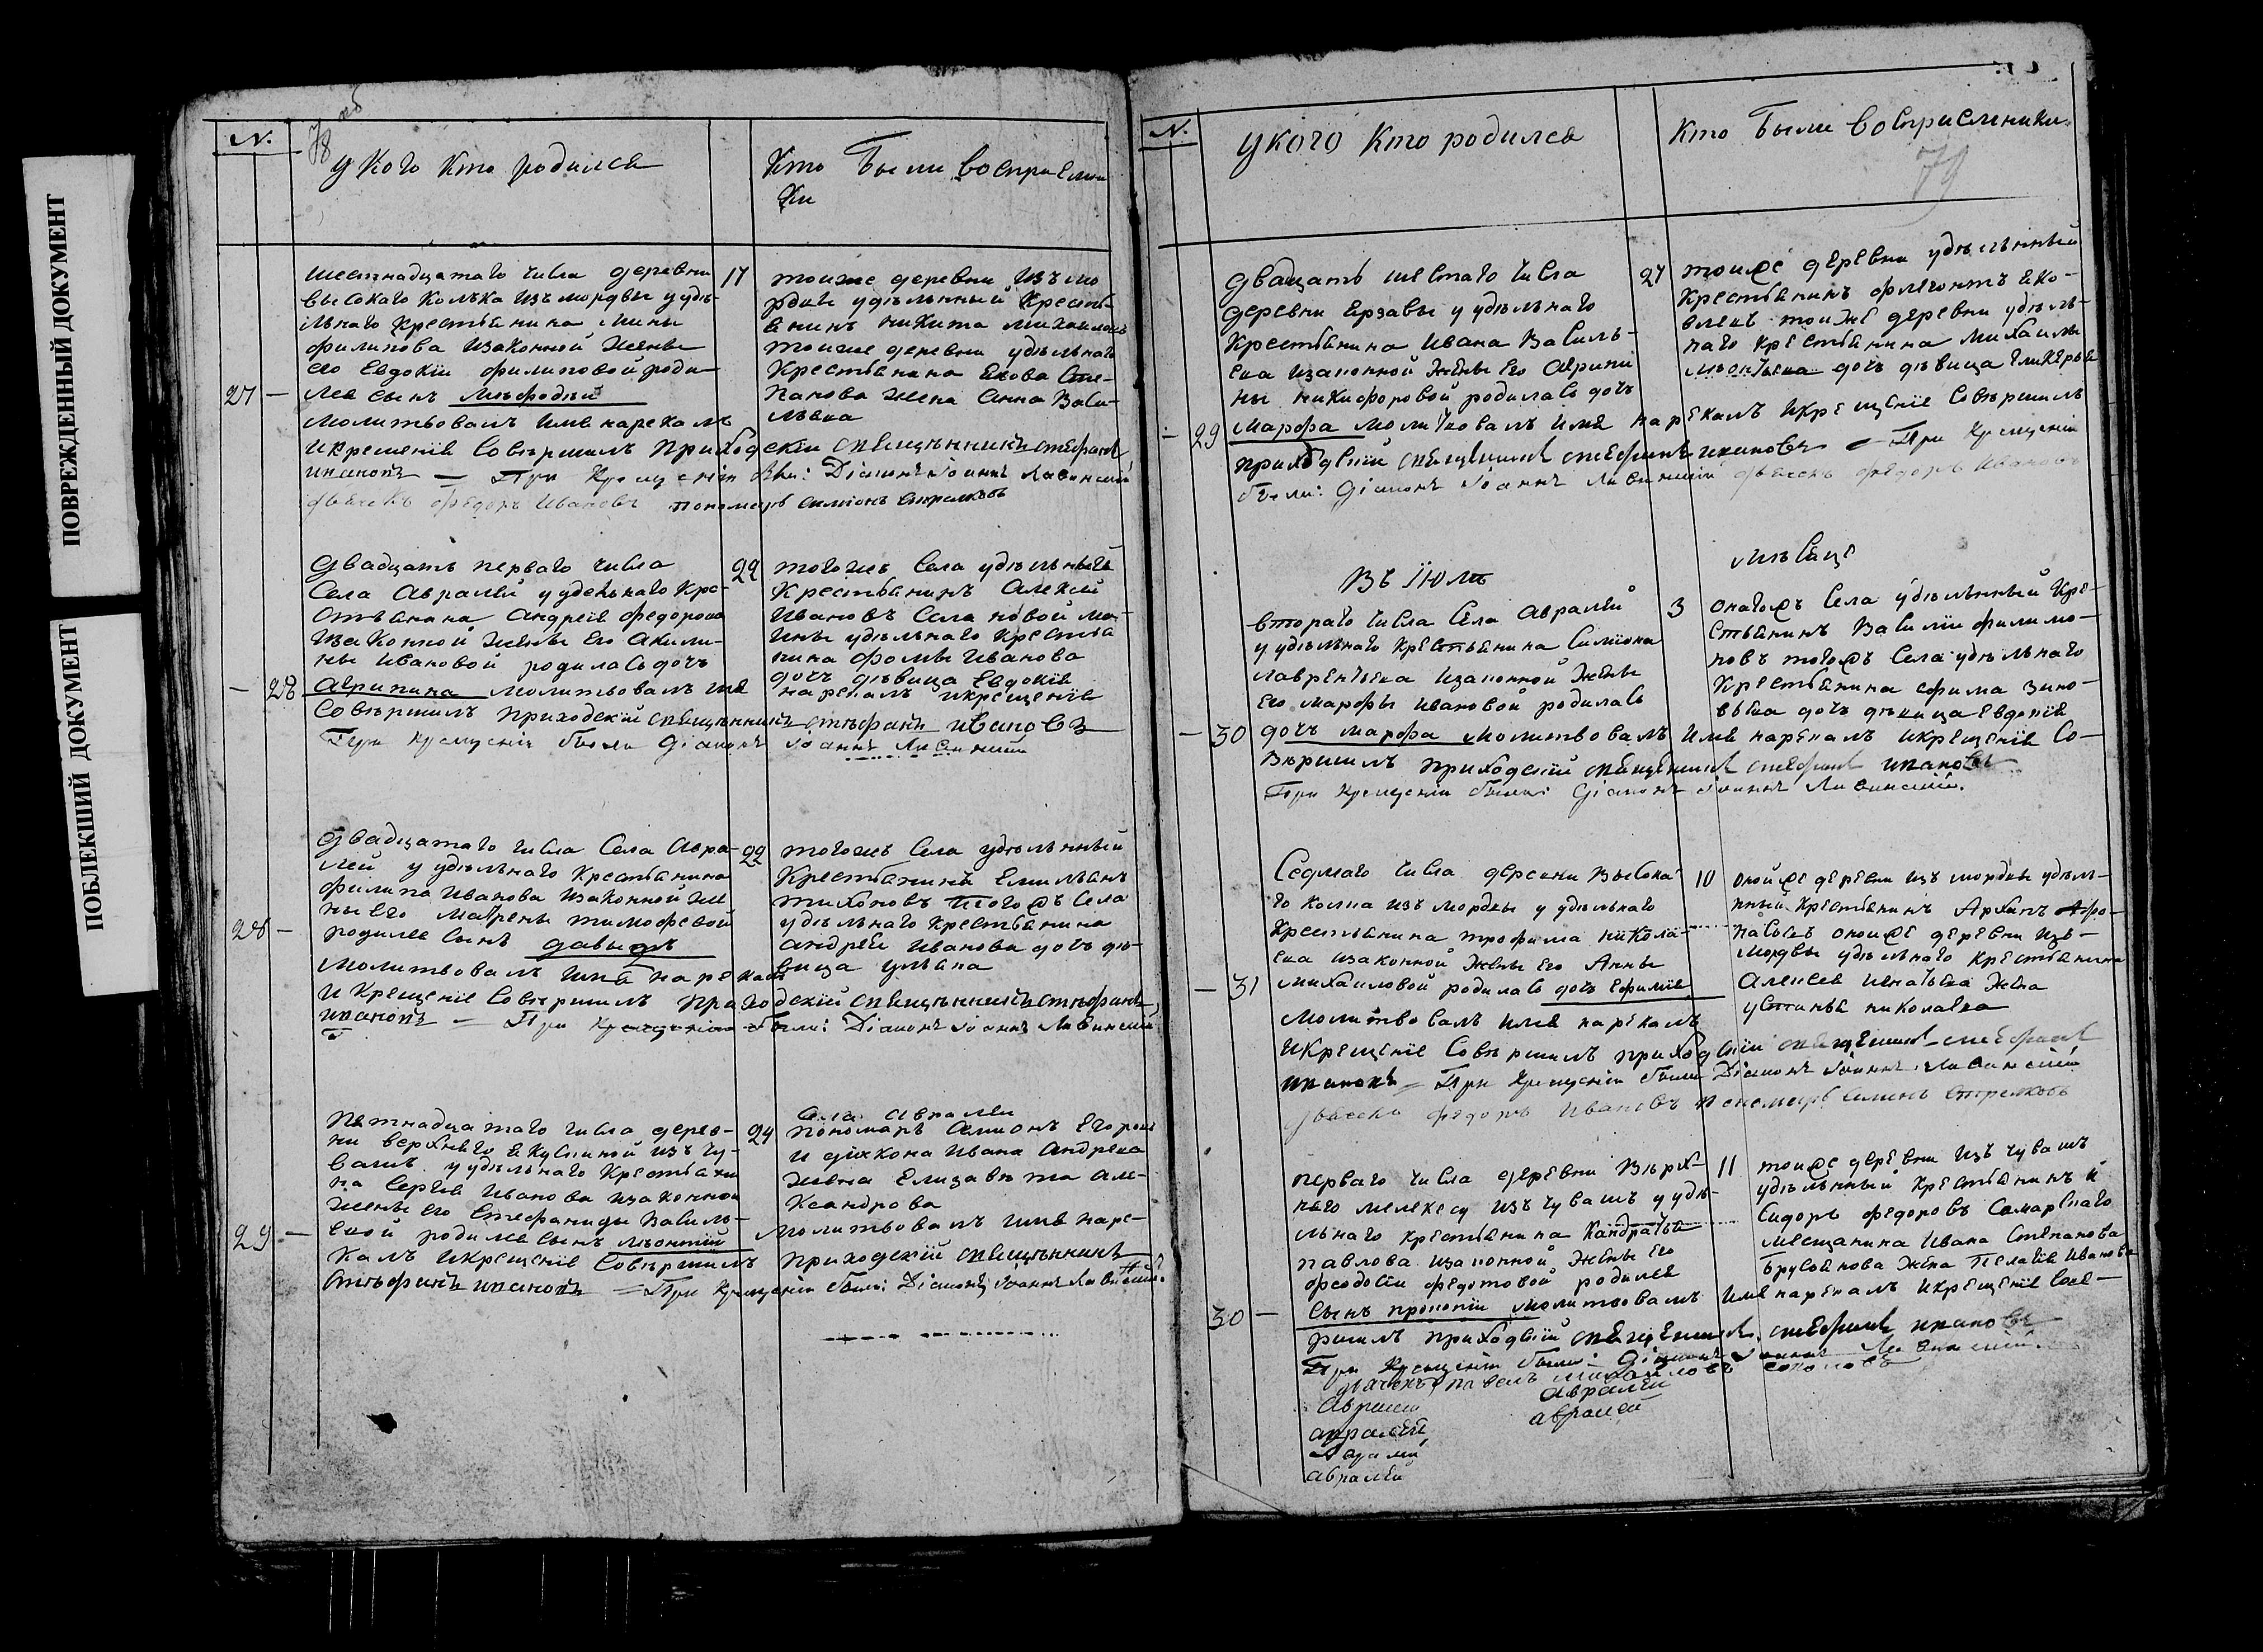 ПОВРЕЖДЕННЫЙ ДОКУМЕНТ
ПОБЛЕКШИЙ ДОКУМЕНТ
78 об
N.
У кого кто родился
Кто были восприемни
ки
шестнадцатаго числа деревни
высокаго колька изъ мордвы у удѣ-
льнаго крестьянина Мины
филипова изаконной жены
его Евдокіи филиповой роди
27 — лся сынъ Мѣфодій
молитвовалъ имя нарекалъ
икрещеніе совѣршилъ приходскій свящѣнникъ стефанъ
ивановъ — При крещеніи были: Діаконъ Іоаннъ Лавинскій
дьячекъ федоръ Ивановъ пономарь симіонъ стрелковъ
17
тоиже деревни изъ мо
рдвы удѣльный крестья
янинъ никита михаиловъ
тоиже деревни удѣльнаго
крестьянина Якова Сте-
панова жена Анна Васи-
льева
двадцать перваго числа
села Авралей у удельнаго кре-
стьянина Андрея федорова
изаконной жены его Акили-
ны Ивановой родилась дочь
— 28 Агрипина молитвовалъ имя нарекалъ икрещеніе
совѣршилъ приходскій свящѣнникъ стѣфанъ ивановъ
При крещеніи были Діаконъ Іоаннъ Лавинскій
22
тогожъ села удѣльный
крестьянинъ Алексей
Ивановъ села новой Ма-
ины удѣльнаго крестья
нина фомы Иванова
дочь дѣвица Евдокія
двадцатаго числа села Авра-
лей у удѣльнаго крестьянина
филипа Иванова изаконной же
ны его матрены тимофевой
28 — родился сынъ давыдъ
молитвовалъ имя нарекалъ
и крещеніе совѣршилъ приходскій свящѣнникъ стѣфанъ
ивановъ — При крещеніи были: Діаконъ Іоаннъ Лавинскій
22
тогожъ села удѣльный
крестьянинъ Емильянъ
тихоновъ тогожъ села
удѣльнаго крестьянина
андрея Иванова дочь дѣ-
вица ульяна
пятнадцатаго числа дерев-
ни верхняго якушкиной изъ чу-
вашъ у удѣльнаго крестьяни
на Сергея Иванова изаконной
жены его Стефаниды Василь-
29 — евой родился сынъ лѣонтій молитвовалъ имя наре-
калъ икрещеніе совѣршилъ приходскій свящѣнникъ
стѣфанъ ивановъ — При крещеніи были: Діаконъ Іоаннъ Лавинскій
24
села Авралей
пономарь Симионъ Егоровъ
и дьякона Ивана Андреева
жена Елизавѣта Але-
ксандрова
N.
У кого кто родился
Кто были восприемники
79
двацать шестаго числа
деревни Ерзавы у удѣльнаго
крестьянина Ивана Василь-
ева изаконной жены его Агрипи
ны никифоровой родилась дочь
— 29 марфа молитвовалъ имя нарекалъ икрещеніе совѣршилъ
приходскій священникъ стефанъ ивановъ — При крещеніи
были: Діаконъ Іоаннъ Лавинскій дьячекъ федоръ Ивановъ
27
тоиже деревни удѣльный
крестьянинъ флегонтъ яко-
влевъ тоиже деревни удѣль-
наго крестьянина михаилы
лѣонтьева дочь дѣвица гликерья
Въ Іюлѣ мѣсяцѣ
втораго числа села авралей
у удѣльнаго крестьянина Симіона
лаврентьева изаконной жены
его марфы ивановой родилась
— 30 дочь марфа молитвовалъ имя нарекалъ икрещеніе со-
вѣршилъ приходскій священникъ стефанъ ивановъ
При крещеніи были: Діаконъ Іоаннъ Лавинскій.
3
онагожъ села удѣльный кре-
стьянинъ Василіи филимо-
новъ тогожъ села удѣльнаго
крестьянина ефима зино-
вьева дочь дѣвица Евдокія
Седмаго числа деревни высока-
го колка изъ мордвы у удѣльнаго
крестьянина трофима никола-
ева изаконной жены его Анны
— 31 михаиловой родилась дочь Ефимія
молитвовалъ имя нарекалъ
икрещеніе совѣршилъ приходскіи священникъ стефанъ
ивановъ — При крещеніи были Діаконъ Іоаннъ Лавинскій
дьячекъ федоръ Ивановъ пономарь Симионъ стрелковъ
10
оноиже деревни изъ мордвы удѣль-
ный крестьянинъ Архипъ Афо-
насьевъ оноиже деревни изъ
мордвы удѣльнаго крестьянина
Алексея игнатьева жена
устинья николаева
перваго числа деревни вѣрх-
няго мелекесу изъ чувашъ у удѣ-
льнаго крестьянина кандратья
павлова изаконной жены его
феодосіи федотовой родился
30 — сынъ прокопій молитвовалъ имя нарекалъ икрещеніе сове-
ршилъ приходскій священникъ стефанъ ивановъ
При крещеніи были: Діаконъ Іоаннъ Лавинскій.
дьячекъ павелъ михаиловъ соколовъ
11
тоиже деревни изъ чувашъ
удѣльный крестьянинъ
Сидоръ федоровъ Самарскаго
мещанина Ивана Степанова
Брусьянова жена Пелагея Иванова
авралеи
авралей
авралей
авралеи